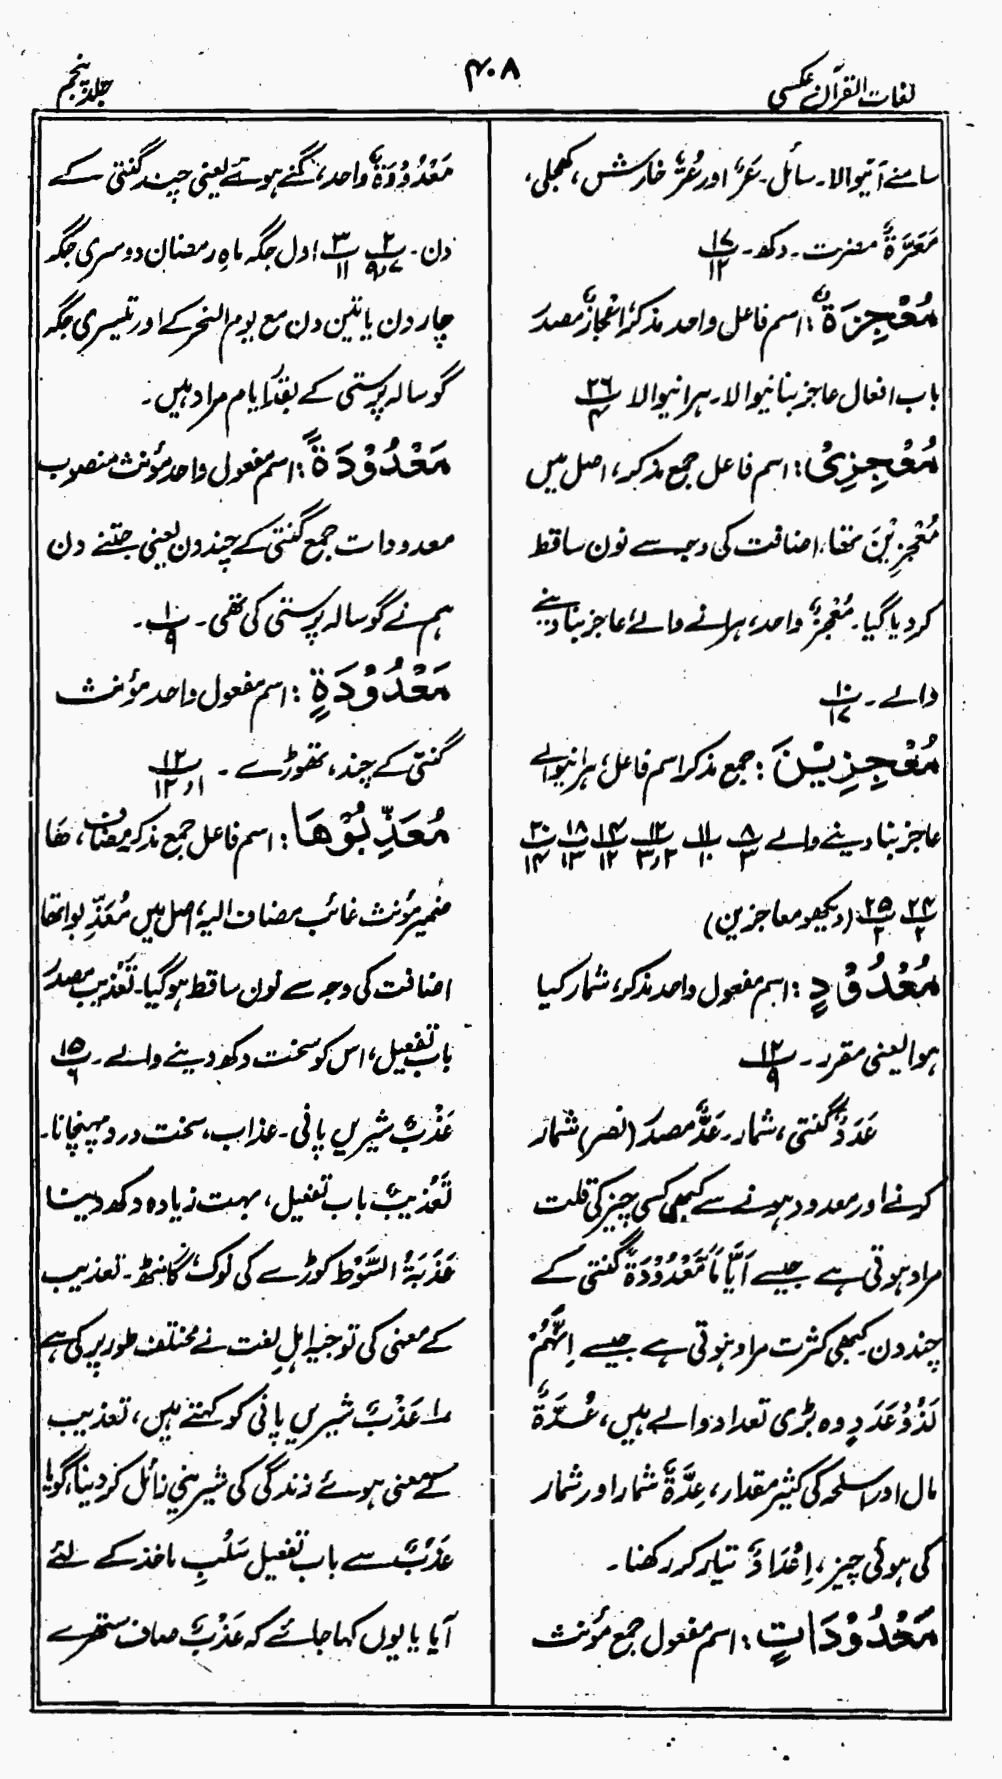 لغات القرآن عکسی
۴۰۸
جلد پنجم
سامنے آنیوالا۔ سائل۔ عَرٌّ اور عُرٌّ خارش، کھجلی،
مَعَرَّةٌ مضرت۔ دکھ۔ ۱۷/۱۲
مُعْجِزَةٌ: اسم فاعل واحد مذکر، اِعْجَازٌ مصدر
باب افعال عاجز بنانیوالا۔ ہرانیوالا ۲۶/۴
مُعْجِزِیْ: اسم فاعل جمع مذکر، اصل میں
مُعْجِزِیْنَ تھا، اضافت کی وجہ سے نون ساقط
کر دیا گیا۔ مُعْجِزٌ واحد، ہرانے والے، عاجز بنا دینے
والے۔ ۱۰/۱۷
مُعْجِزِیْنَ: جمع مذکر اسم فاعل، ہرانیوالے
عاجز بنا دینے والے ۸/۳ ۱۱/۱۰ ۱۲/۳٫۲ ۱۴/۱۲ ۱۸/۱۳ ۲۰/۱۴
۲۴/۲ ۲۵/۲ (دیکھو معاجزین)
مَعْدُوْدٍ: اسم مفعول واحد مذکر، شمار کیا
ہوا یعنی مقرر۔ ۱۲/۹
عَدَدٌ گنتی، شمار۔ عَدٌّ مصدر (نصر) شمار
کرنے اور معدود ہونے سے کبھی کسی چیز کی قلت
مراد ہوتی ہے جیسے اَیَّامًا مَّعْدُوْدَةً گنتی کے
چند دن۔ کبھی کثرت مراد ہوتی ہے جیسے اِنَّهُمْ
لَذُوْ عَدَدٍ وہ بڑی تعداد والے ہیں، عُدَّةٌ
مال اور اسلحہ کی کثیر مقدار، عِدَّةٌ شمار اور شمار
کی ہوئی چیز، اِعْدَادٌ تیار کر رکھنا۔
مَعْدُوْدَاتٍ: اسم مفعول جمع مؤنث
مَعْدُوْدَةٌ واحد، گنے ہوئے یعنی چند گنتی کے
دن۔ ۲/۹٫۷ ۳/۱۱ اول جگہ ماہِ رمضان دوسری جگہ
چار دن یا تین دن مع یوم النحر کے اور تیسری جگہ
گوسالہ پرستی کے بقدر ایام مراد ہیں۔
مَعْدُوْدَةً: اسم مفعول واحد مؤنث منصوب
معدودات جمع گنتی کے چند دن یعنی جتنے دن
ہم نے گوسالہ پرستی کی تھی۔ ۱/۹۔
مَعْدُوْدَةٍ: اسم مفعول واحد مؤنث
گنتی کے چند، تھوڑے۔ ۱۲/۱٫۱۲
مُعَذِّبُوْهَا: اسم فاعل جمع مذکر مضاف، ھَا
ضمیر مؤنث غائب مضاف الیہ، اصل میں مُعَذِّبون تھا
اضافت کی وجہ سے نون ساقط ہو گیا۔ تَعْذِیْب مصدر
باب تفعیل، اس کو سخت دکھ دینے والے۔ ۱۵/۶
عَذْبٌ شیریں پانی۔ عذاب، سخت درد پہنچانا۔
تَعْذِیْبٌ باب تفعیل، بہت زیادہ دکھ دینا
عَذَبَةُ السَّوْط کوڑے کی نوک، گانٹھ۔ تعذیب
کے معنی کی توجیہ اہلِ لغت نے مختلف طور پر کی ہے
۱۔ عَذْبٌ شیریں پانی کو کہتے ہیں، تعذیب
کے معنی ہوئے زندگی کی شیرینی زائل کر دینا، گویا
عَذْبٌ سے باب تفعیل سَلْبِ ماخذ کے لئے
آیا یا یوں کہا جائے کہ عَذْبٌ صاف ستھرے